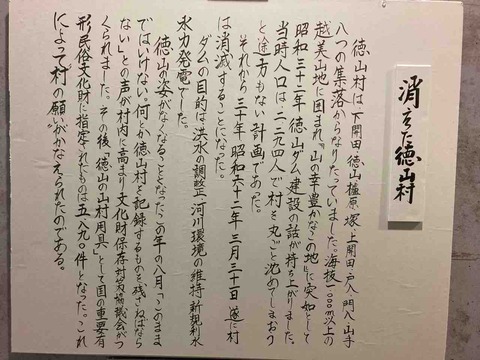 消えた徳山村
徳山村は、下開田・徳山・櫨原・塚・上開田・戸入・門入・山手
八つの集落からなりたっていました。海抜一〇〇〇m以上の
越美山地に囲まれ〝山の幸豊かなこの地〟に突如として
昭和三十二年徳山ダム建設の話が持ち上がりました。
当時人口は二二九四人で村を丸ごと沈めてしまおう
と途方もない計画であった。
それから三十年昭和六十二年三月三十一日遂に村
は消滅することになった。
ダムの目的は洪水の調整・河川環境の維持・新規利水
水力発電でした。
徳山の姿がなくなることになったこの年の八月「このまま
ではいけない。何か徳山村を記録するものを残さねばなら
ない」との声が村内に高まり文化財保存対策協議会がつ
くられました。その後「徳山の山村用具」として国の重要有
形民俗文化財に指定されたものは五八九〇件となった。これ
によって村の願いがかなえられたのである。